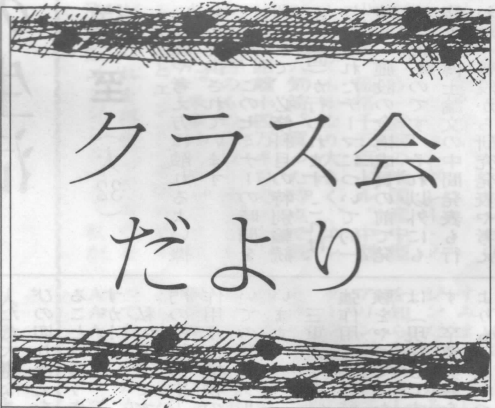 クラス会
だより